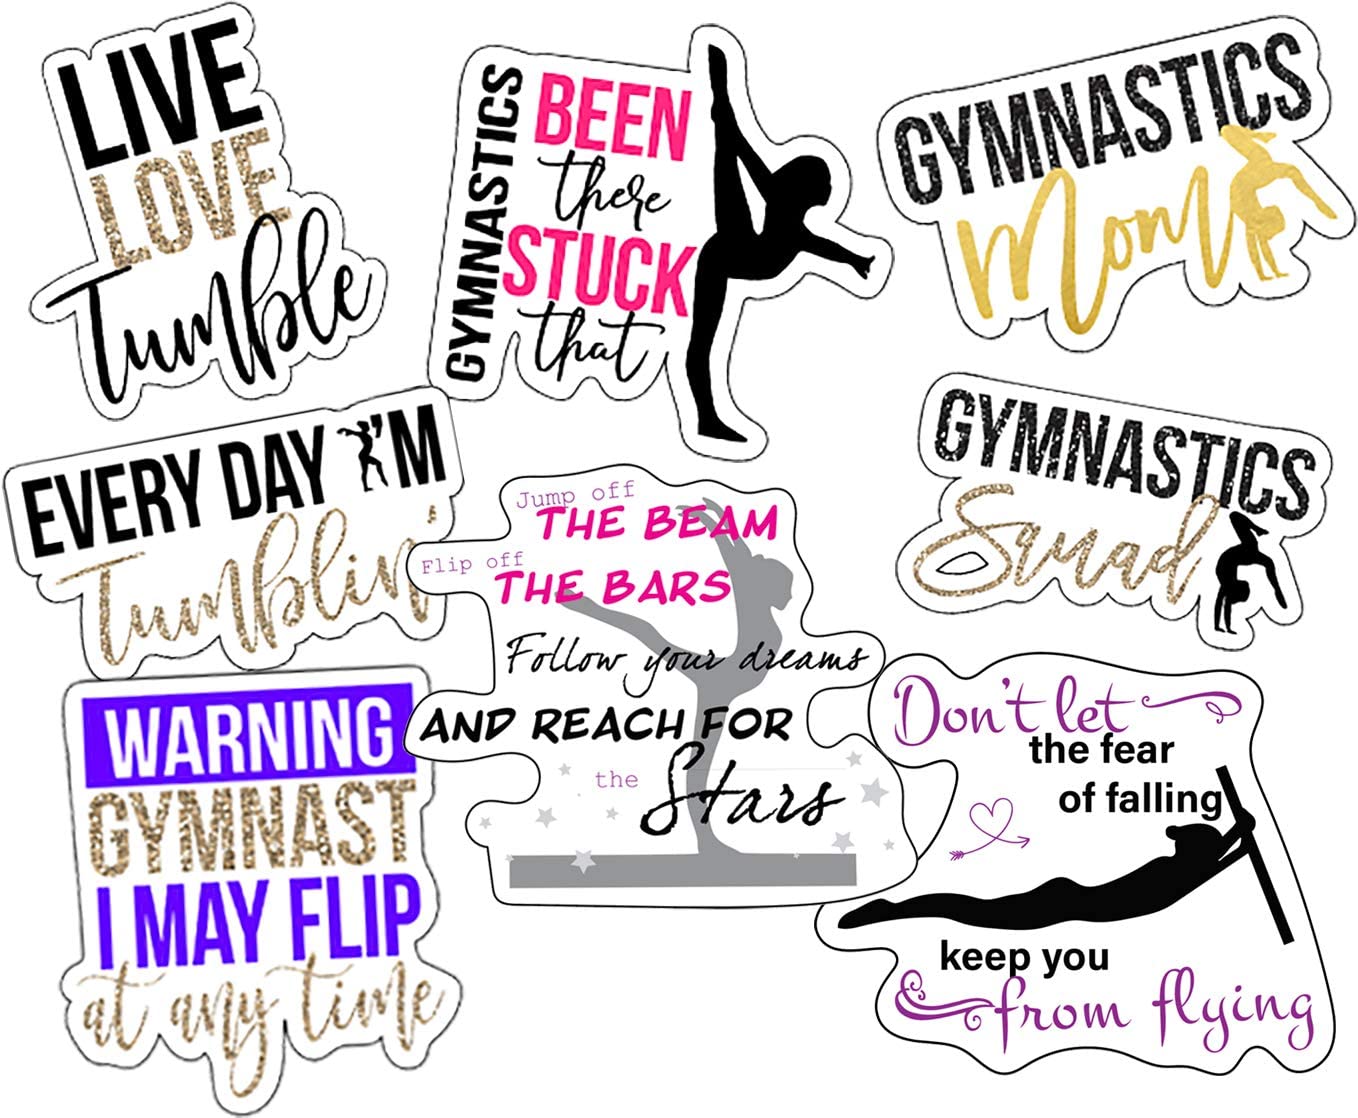 LIVE
LOVE
Tumble
GYMNASTICS
BEEN
there
STUCK
that
GYMNASTICS
Mom
EVERY DAY I'M
Tumblin'
Jump off
THE BEAM
Flip off
THE BARS
Follow your dreams
AND REACH FOR
the
Stars
GYMNASTICS
Squad
WARNING
GYMNAST
I MAY FLIP
at any time
Don't let
the fear
of falling
keep you
from flying